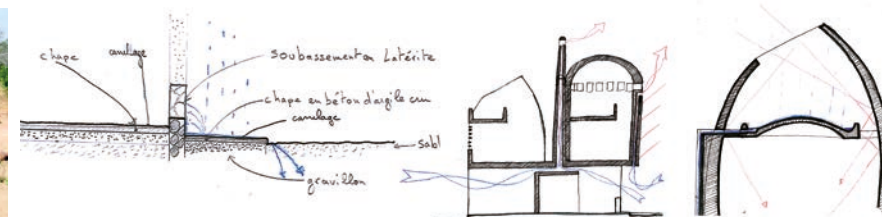 chape
carrelage
soubassement en Latérite
chape en béton d'argile cru
carrelage
sabl
gravillon